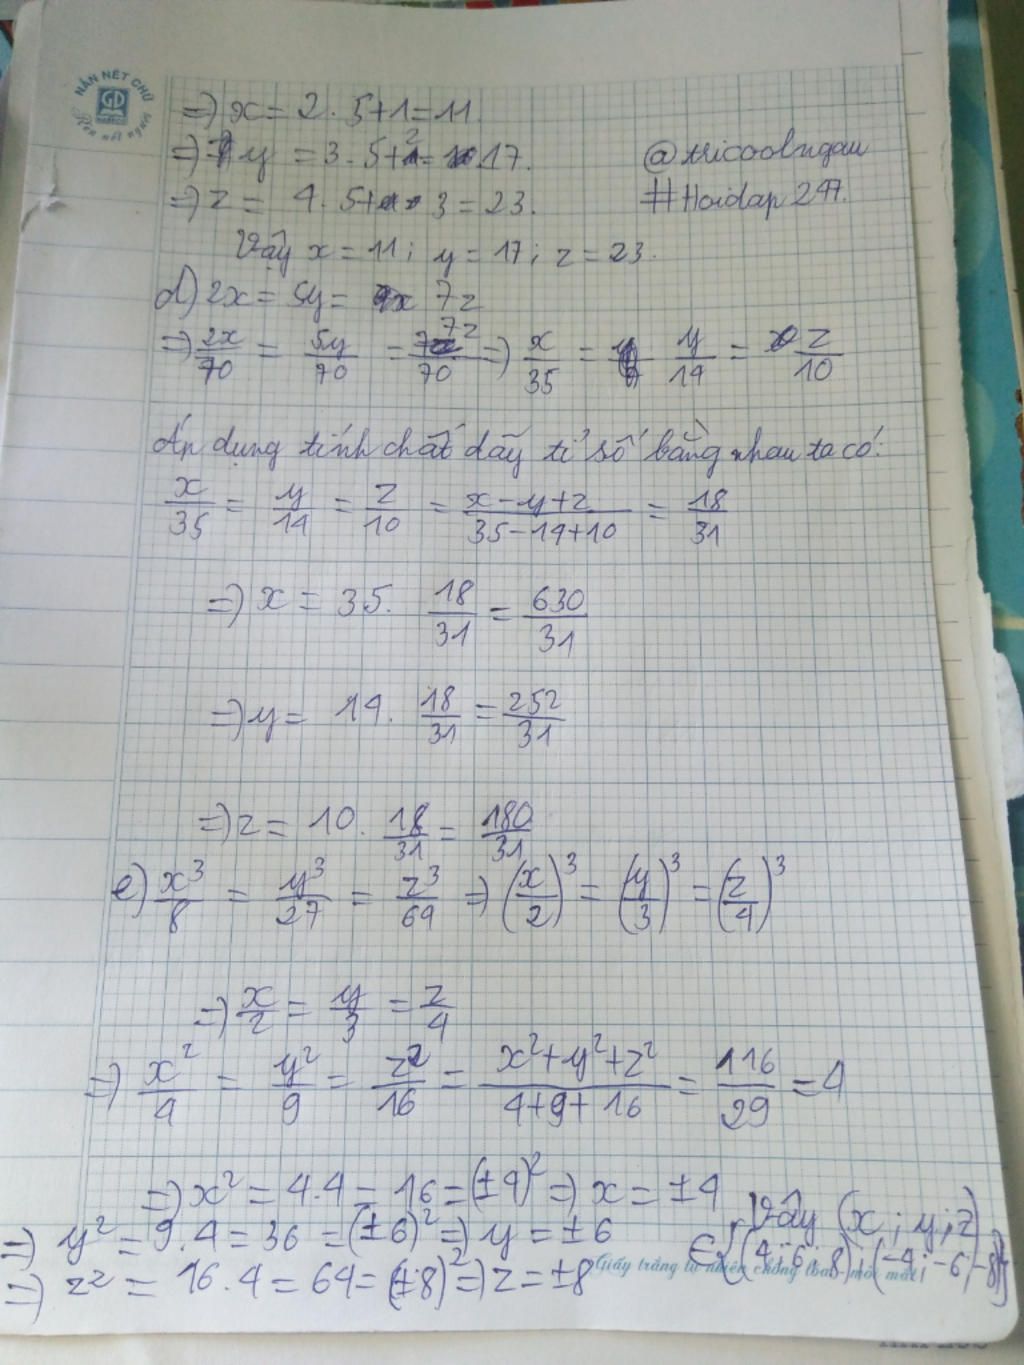 NẮN NÉT CHỮ
GD
Rèn nết người
=) x = 2 . 5 + 1 = 11.
=) y = 3 . 5 + 2 = 17.
@tricoolngau
=) z = 4 . 5 + 3 = 23.
#Hoidap247.
Vậy x = 11 ; y = 17 ; z = 23.
d) 2x = 5y = 7z
=) 2x/70 = 5y/70 = 7z/70 =) x/35 = y/14 = z/10
Áp dụng tính chất dãy tỉ số bằng nhau ta có:
x/35 = y/14 = z/10 = (x-y+z)/(35-14+10) = 18/31
=) x = 35. 18/31 = 630/31
=) y = 14. 18/31 = 252/31
=) z = 10. 18/31 = 180/31
e) x³/8 = y³/27 = z³/64 =) (x/2)³ = (y/3)³ = (z/4)³
=) x/2 = y/3 = z/4
=) x²/4 = y²/9 = z²/16 = (x²+y²+z²)/(4+9+16) = 116/29 = 4
=) x² = 4.4 = 16 = (±4)² =) x = ±4
=) y² = 9.4 = 36 = (±6)² =) y = ±6
=) z² = 16.4 = 64 = (±8)² =) z = ±8
Vậy (x ; y ; z)
∈ {(4; 6; 8) ; (-4; -6; -8)}
Giấy trắng tự nhiên chống lóa mỏi mắt